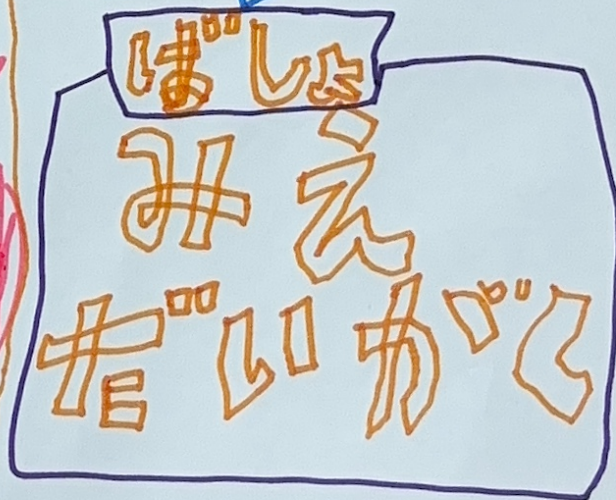 ばしょ
みえ
だいがく